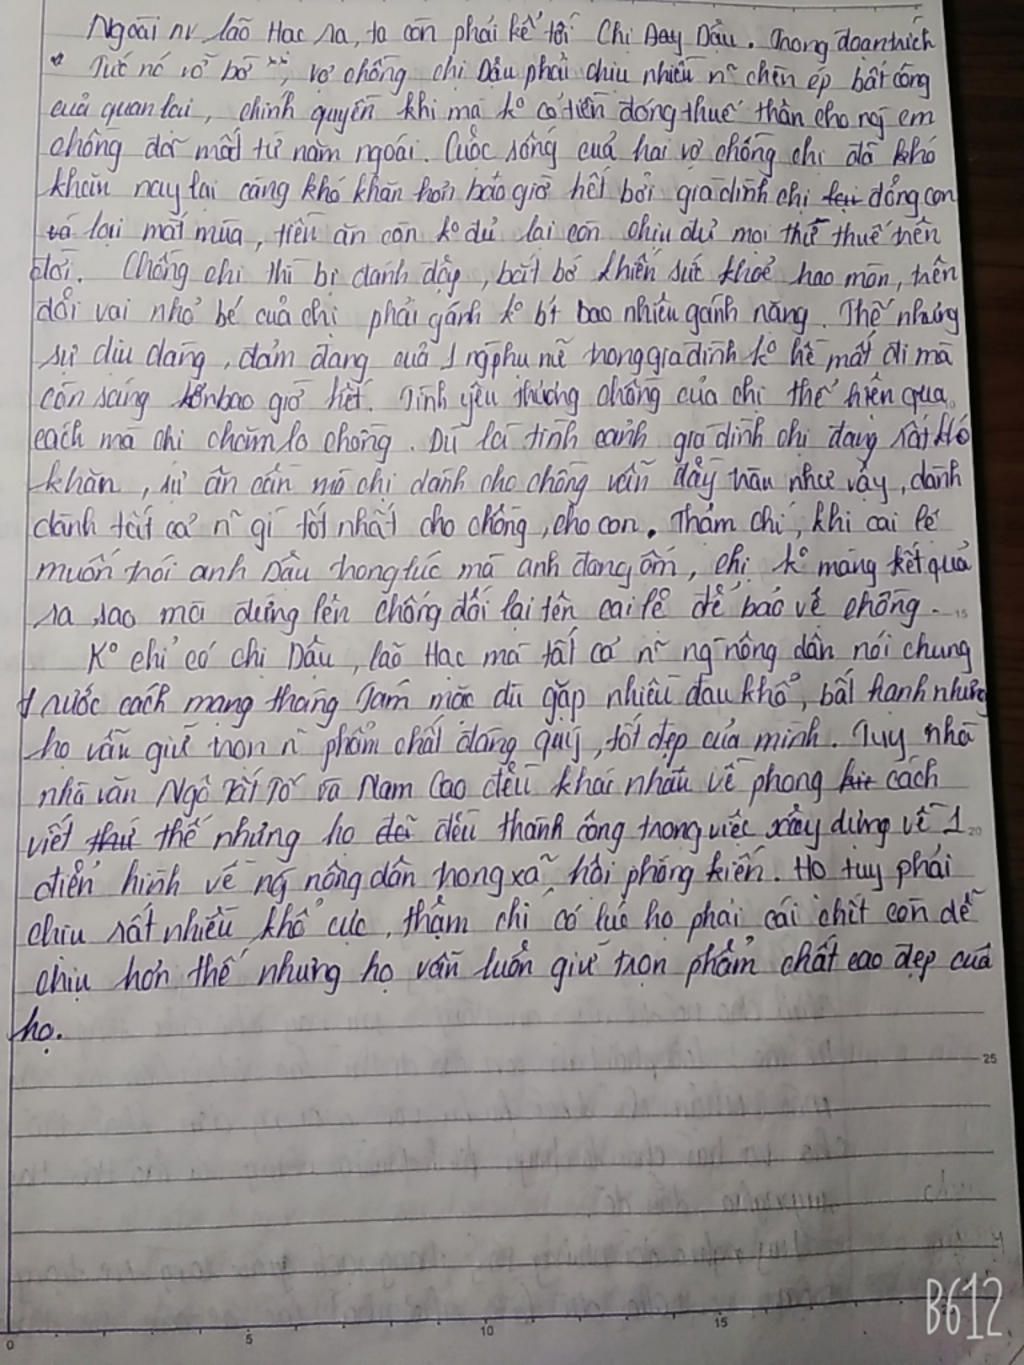 Ngoài nv lão Hạc ra, ta còn phải kể tới Chị Dậu. Trong đoạn trích
" Tức nc vỡ bờ ", vợ chồng chị Dậu phải chịu nhiều n~ chèn ép bất công
của quan lại, chính quyền khi mà ko có tiền đóng thuế thân cho ng em
chồng đã mất từ năm ngoái. Cuộc sống của hai vợ chồng chị đã khó
khăn nay lại càng khó khăn hơn bao giờ hết bởi gia đình chị đông con
lại mất mùa, tiền ăn còn ko đủ lại còn chịu đủ mọi thứ thuế trên
đời. Chồng chị thì bị đánh đập, bắt bớ khiến sức khoẻ hao mòn, trên
đôi vai nhỏ bé của chị phải gánh ko bt bao nhiêu gánh nặng. Thế nhưng
sự dịu dàng, đảm đang của 1 ng phụ nữ trong gia đình ko hề mất đi mà
còn sáng hơn bao giờ hết. Tình yêu thương chồng của chị thể hiện qua
cách mà chị chăm lo chồng. Dù là tình cảnh gia đình chị đang rất khó
khăn, sự ân cần mà chị dành cho chồng vẫn đầy tràn như vậy, dành
dành tất cả n~ gì tốt nhất cho chồng, cho con. Thậm chí, khi cai lệ
muốn trói anh Dậu trong lúc mà anh đang ốm, chị ko màng kết quả
ra sao mà đứng lên chống đối lại tên cai lệ để bảo vệ chồng.
Ko chỉ có chị Dậu, lão Hạc mà tất cả n~ ng nông dân nói chung
trước cách mạng tháng Tám mặc dù gặp nhiều đau khổ, bất hạnh nhưng
họ vẫn giữ trọn n~ phẩm chất đáng quý, tốt đẹp của mình. Tuy nhà
nhà văn Ngô Tất Tố và Nam Cao đều khác nhau về phong cách
viết thế nhưng họ đều thành công trong việc xây dựng về 1
điển hình về ng nông dân trong xã hội phong kiến. Họ tuy phải
chịu rất nhiều khổ cực, thậm chí có lúc họ phải cái chết còn dễ
chịu hơn thế nhưng họ vẫn luôn giữ trọn phẩm chất cao đẹp của
họ.
15
20
25
0 5 10 15
B612